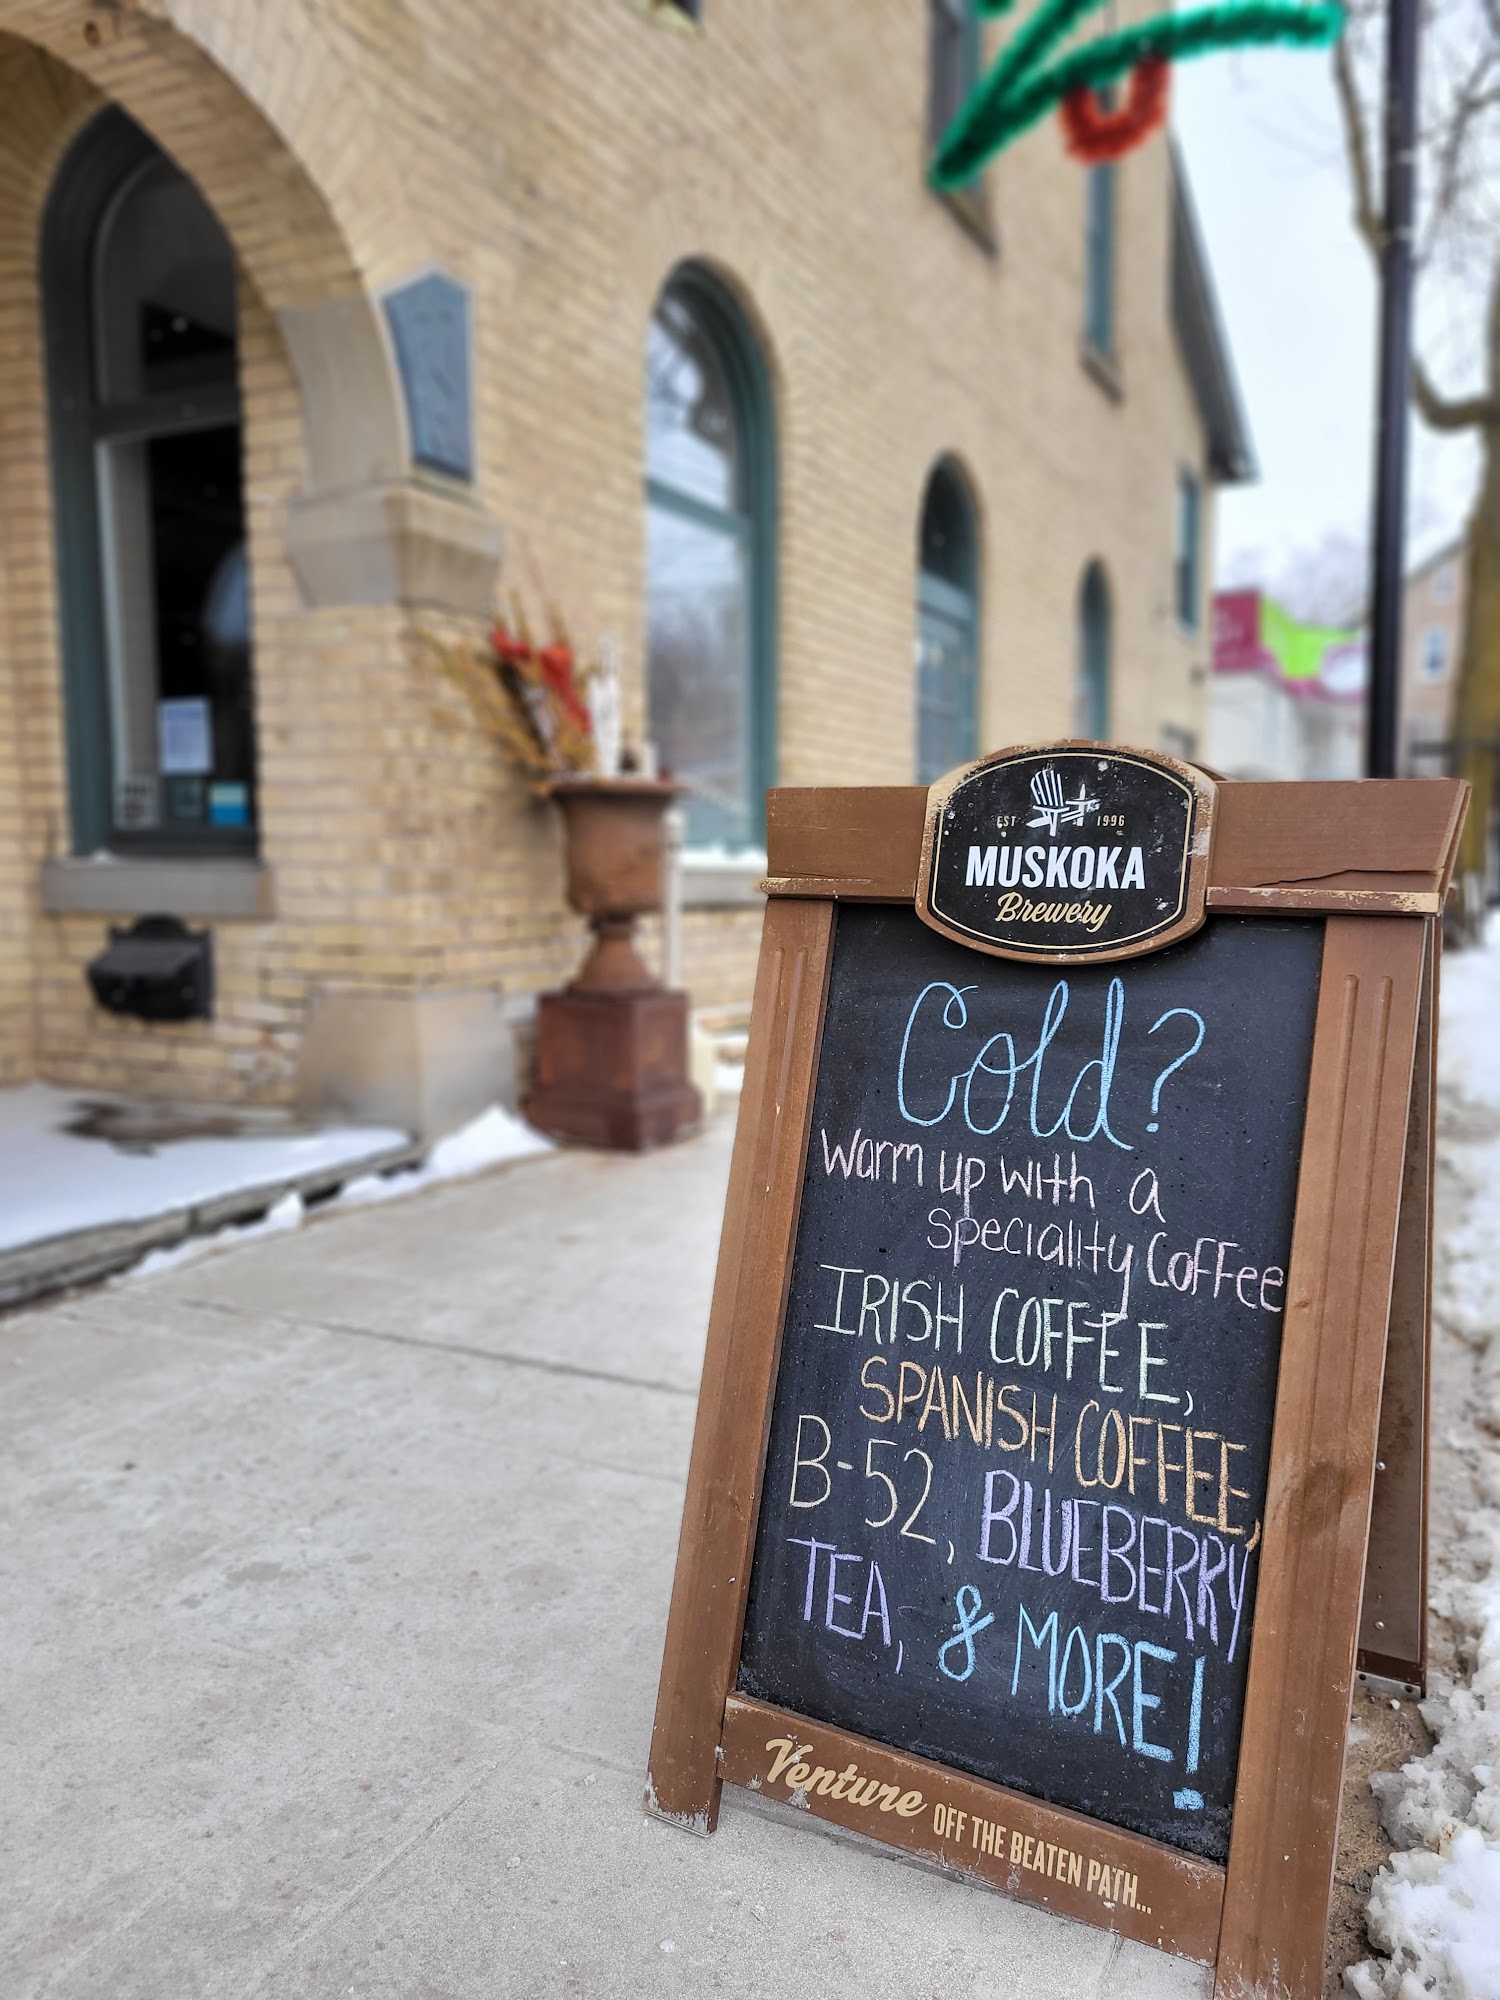 EST 1996
MUSKOKA
Brewery
Cold?
Warm up with a
Speciality Coffee
IRISH COFFEE,
SPANISH COFFEE,
B-52, BLUEBERRY
TEA, & MORE!
Venture OFF THE BEATEN PATH...